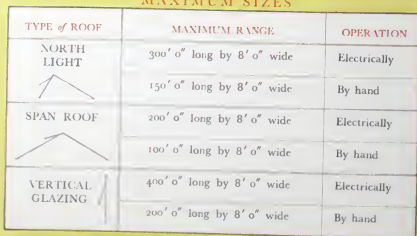 MAXIMUM SIZES
TYPE of ROOF MAXIMUM RANGE OPERATION
NORTH LIGHT 300' 0" long by 8' 0" wide Electrically
150' 0" long by 8' 0" wide By hand
SPAN ROOF 200' 0" long by 8' 0" wide Electrically
100' 0" long by 8' 0" wide By hand
VERTICAL GLAZING 400' 0" long by 8' 0" wide Electrically
200' 0" long by 8' 0" wide By hand